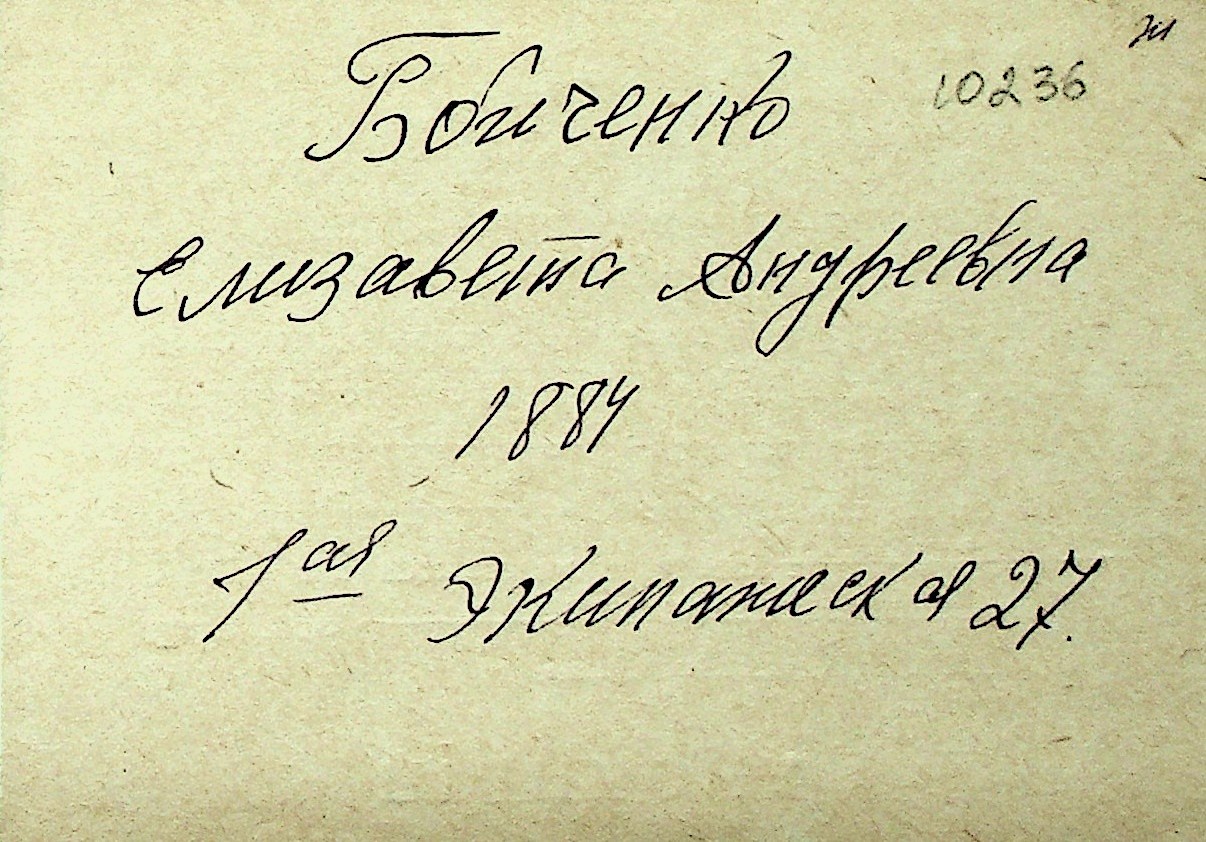 10236
Бойченко
Елизавета Андреевна
1884
1ая Экипажеская 27.